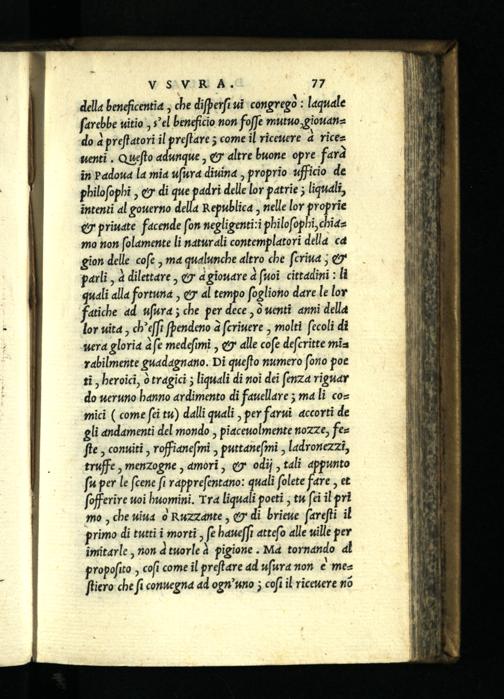 VSVRA. 77
della beneficentia, che dispersi ui congregò: laquale
sarebbe uitio, s'el beneficio non fosse mutuo, giouan=
do à prestatori il prestare; come il riceuere à rice=
uenti. Questo adunque, & altre buone opre farà
in Padoua la mia usura diuina, proprio ufficio de
philosophi, & di que padri delle lor patrie; liquali,
intenti al gouerno della Republica, nelle lor proprie
& priuate facende son negligenti: i philosophi, chia=
mo non solamente li naturali contemplatori della ca
gion delle cose, ma qualunche altro che scriua; &
parli, à dilettare, & à giouare à suoi cittadini: li
quali alla fortuna, & al tempo sogliono dare le lor
fatiche ad usura; che per dece, ò uenti anni della
lor uita, ch'essi spendeno à scriuere, molti secoli di
uera gloria à se medesimi, & alle cose descritte mi=
rabilmente guadagnano. Di questo numero sono poe
ti, heroici, ò tragici; liquali di noi dei senza riguar
do ueruno hanno ardimento di fauellare; ma li co=
mici (come sei tu) dalli quali, per farui accorti de
gli andamenti del mondo, piaceuolmente nozze, fe=
ste, conuiti, roffianesmi, puttanesmi, ladronezzi,
truffe, menzogne, amori, & odij, tali appunto
su per le scene si rappresentano: quali solete fare, et
sofferire uoi huomini. Tra liquali poeti, tu sei il pri
mo, che uiua ò Ruzzante, & di brieue saresti il
primo di tutti i morti, se hauessi atteso alle uille per
imitarle, non à tuorle à pigione. Ma tornando al
proposito, cosi come il prestare ad usura non è me=
stiero che si conuegna ad ogn'uno; cosi il riceuere nõ